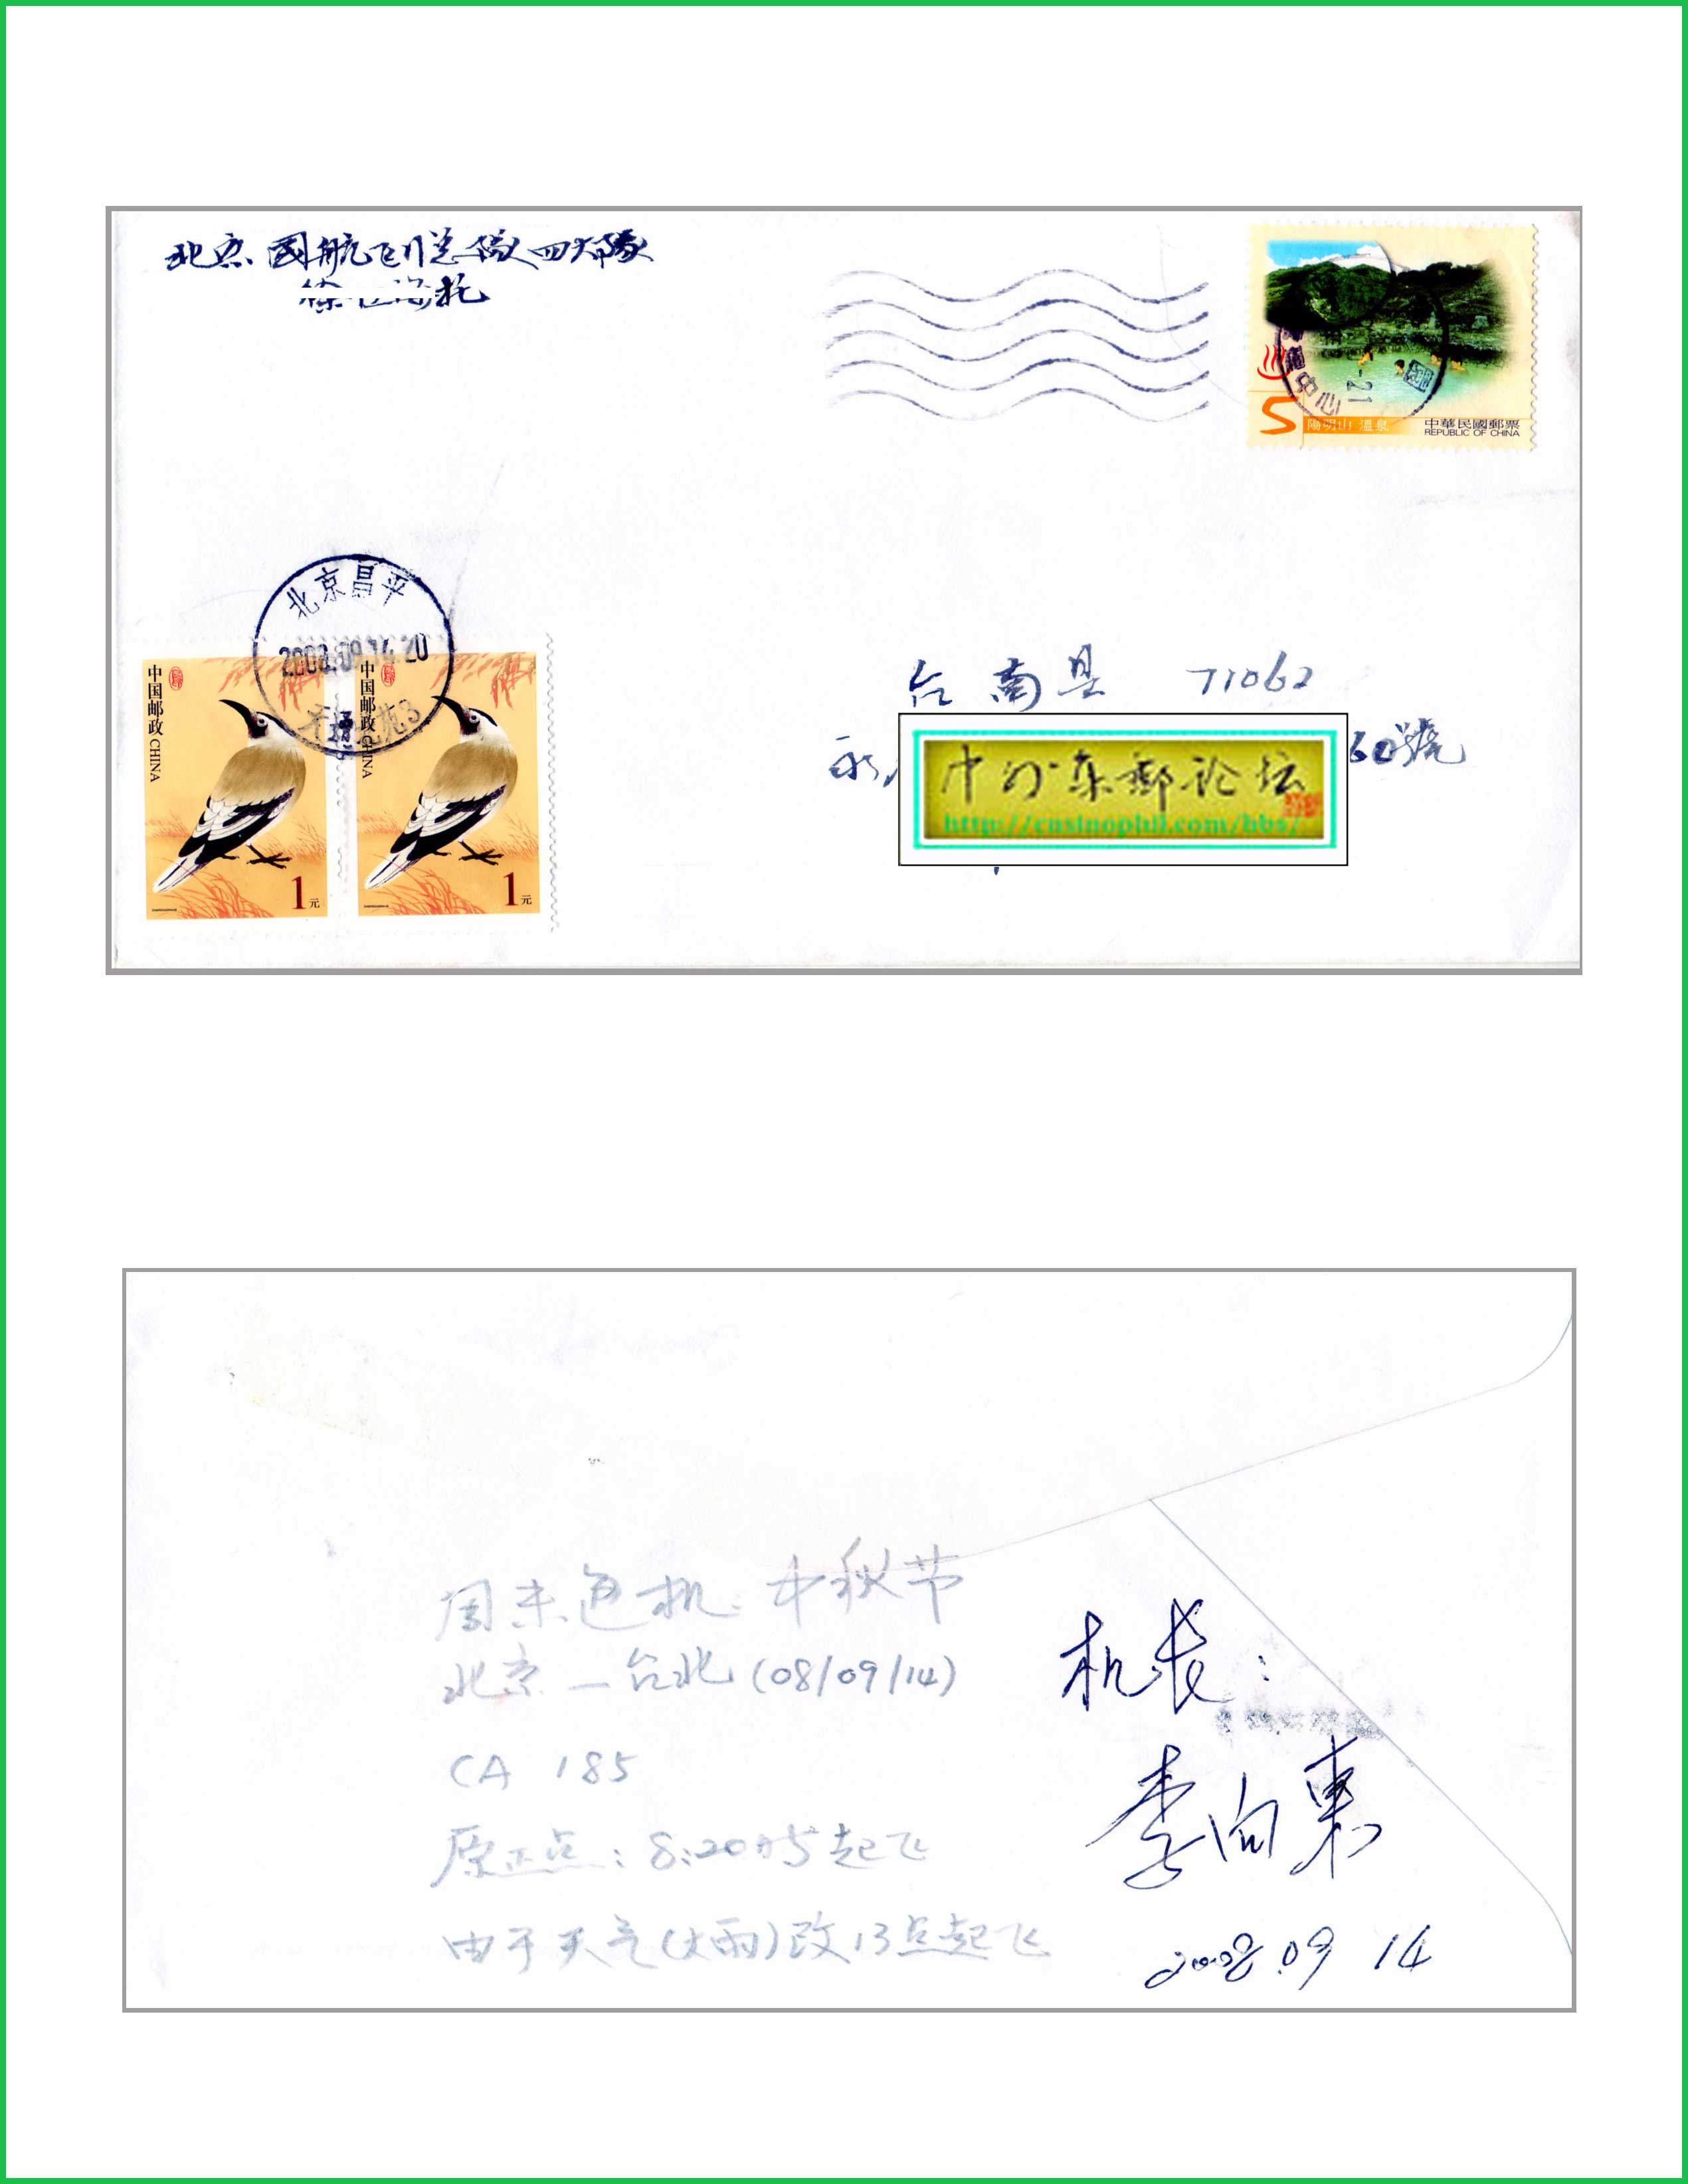 北京國航飞行总隊四大隊
托
5
陽明山 溫泉
中華民國郵票
REPUBLIC OF CHINA
中心
北京昌平
2008.09.14.20
中国邮政 CHINA
1元
中国邮政 CHINA
1元
台南县 71062
永
60號
中外集邮论坛
http://cnsinophil.com/bbs/
周末包机:中秋节
北京—台北(08/09/14)
CA 185
原正点:8:20时起飞
由于天气(大雨)改13点起飞
机长:
李向東
2008.09 14